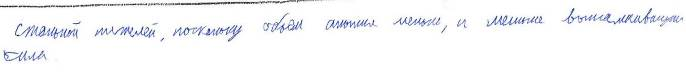 стальной тяжелей, поскольку объём меньше, и меньше выталкивающая
сила